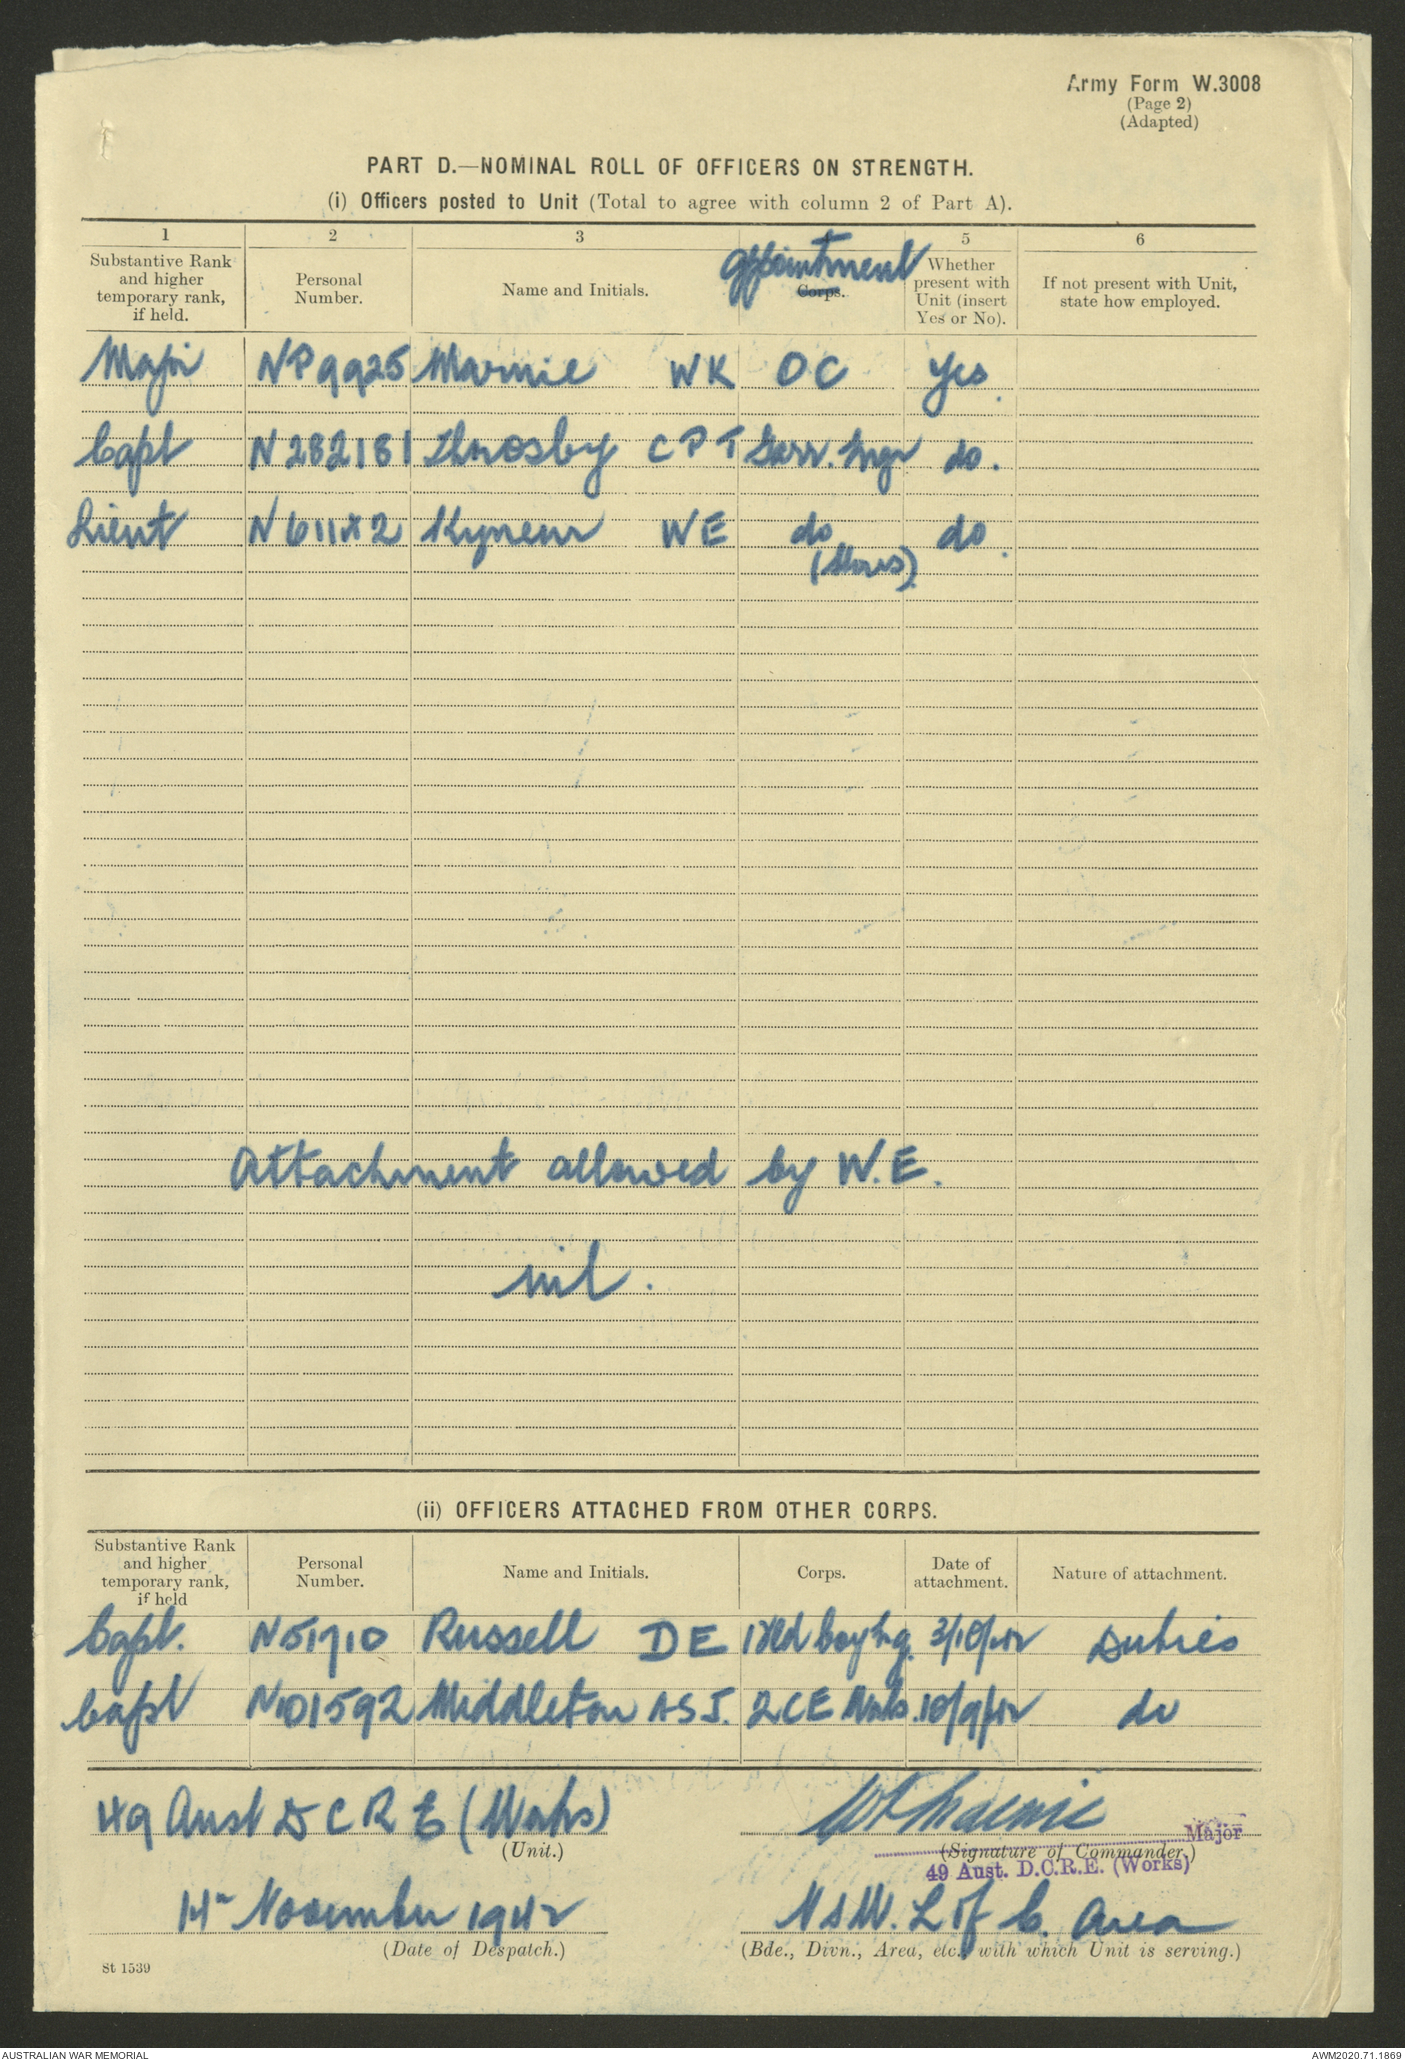 Army Form W.3008
(Page 2)
(Adapted)
PART D.—NOMINAL ROLL OF OFFICERS ON STRENGTH.
(i) Officers posted to Unit (Total to agree with column 2 of Part A).
1 2 3 5 6
Substantive Rank and higher temporary rank, if held.
Personal Number.
Name and Initials.
Appointment
Corps.
Whether present with Unit (insert Yes or No).
If not present with Unit, state how employed.
Major NP9925 Marnie WK OC Yes.
Capt N282181 Throsby C P T Garr. Engr do.
Lieut N61142 WE do do.
(Stores)
Attachment allowed by W.E.
nil.
(ii) OFFICERS ATTACHED FROM OTHER CORPS.
Substantive Rank and higher temporary rank, if held
Personal Number.
Name and Initials.
Corps.
Date of attachment.
Nature of attachment.
Capt. N51710 Russell DE 3/10/42 Duties
Capt N101592 Middleton ASJ. 2 CE Works. 10/9/42 do
49 Aust D C R E (Works)
(Unit.)
WK Marnie
Major
(Signature of Commander.)
49 Aust. D.C.R.E. (Works)
14th November 1942
(Date of Despatch.)
NSW. L of C. Area
(Bde., Divn., Area, etc., with which Unit is serving.)
St 1539
AUSTRALIAN WAR MEMORIAL
AWM2020.71.1869